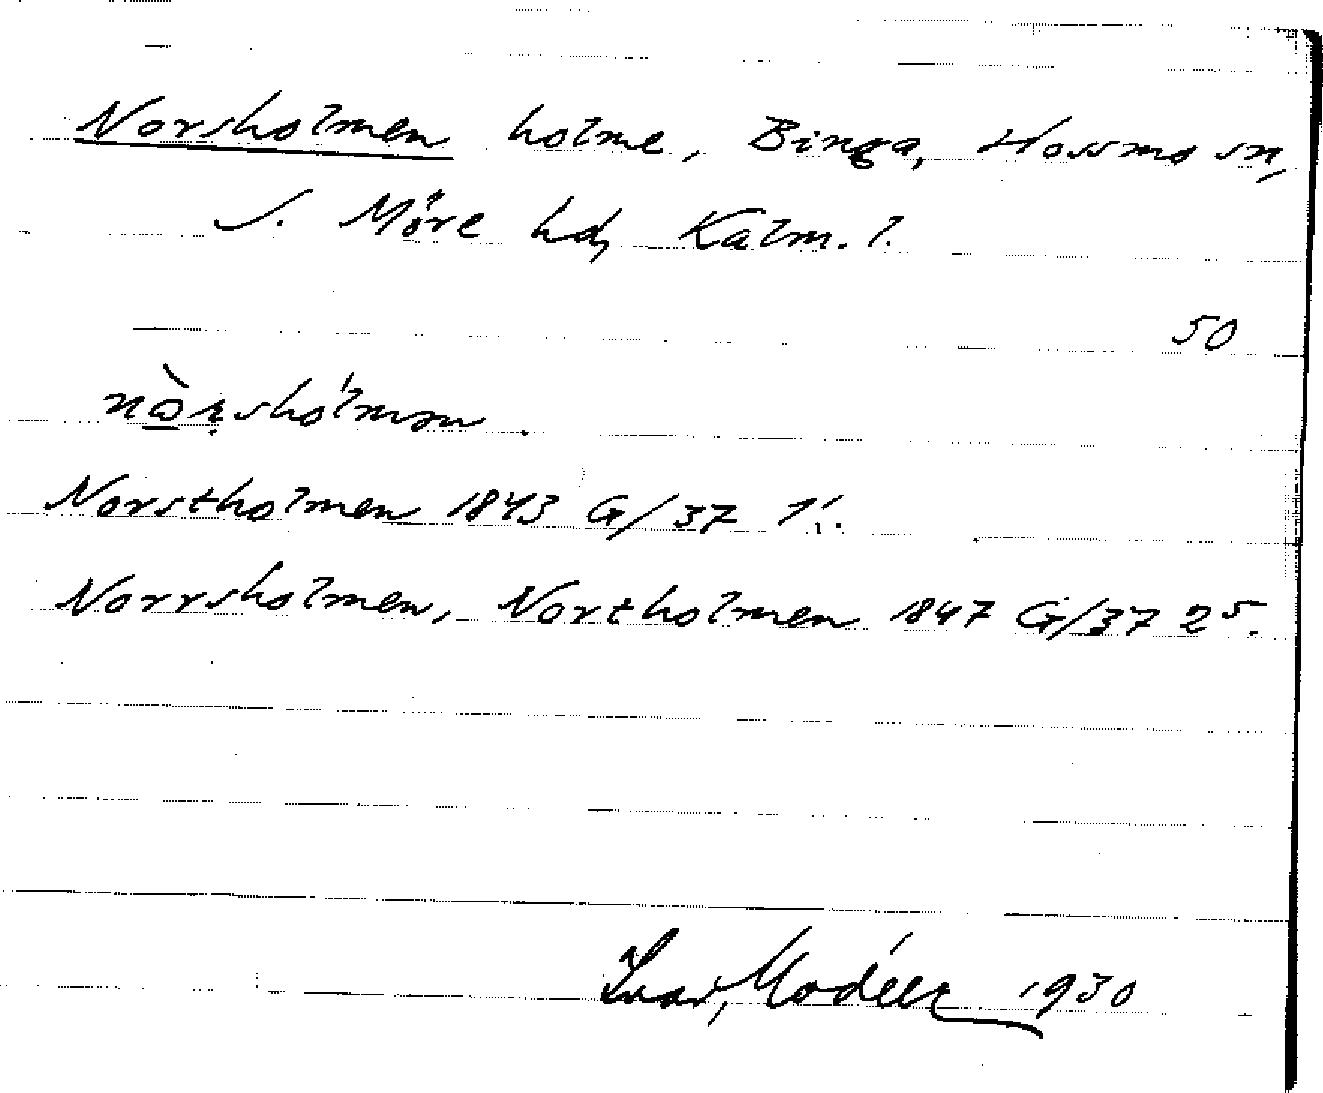 Norsholmen holme, Binga, Hossmo sn,
S. Möre hd, Kalm. l.
50
Norstholmen 1843 G/37
Norrsholmen, Northolmen 1847 G/37 25.
Ivar Modéer 1930